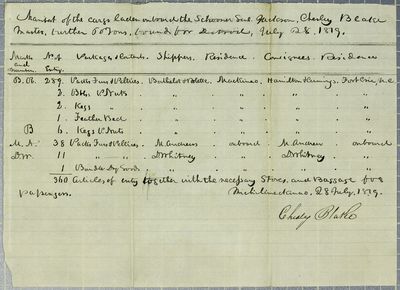 Manifest of the cargo laden onboard the Schooner Genl. Jackson, Chesly Blake
Master, burthen 60 Tons, bound for Detroit, July 28, 1819.
Marks and Numbers No. of Entry. Packages & Contents. Shippers. Residence Consignees. Residence
B.B. 289. Packs Furs & Peltries Mackinac. Hamilton Fort Erie, U.C.
3. Bbls. Nuts " " " "
2. Kegs " " " "
1. Feather Bed " " " "
B 6. Kegs Nuts " " " "
M.A. 38 Packs Furs & Peltries. M. Andrews onboard M. Andrews onboard
D.W. 11 " " D. Whitney " D. Whitney "
1 Bundle Dry Goods " " " "
360 Articles of entry together with the necessary Stores and Baggage for 8
passengers. Michilimackinac, 28 July, 1819.
Chesly Blake